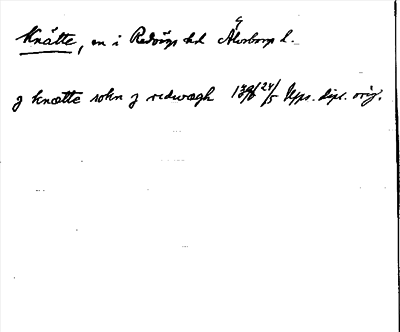 Knätte, sn i Redvägs hd Älvsborgs l.
j knætte sokn j redwægh 1396 24/5 Ups. dipl. orig.